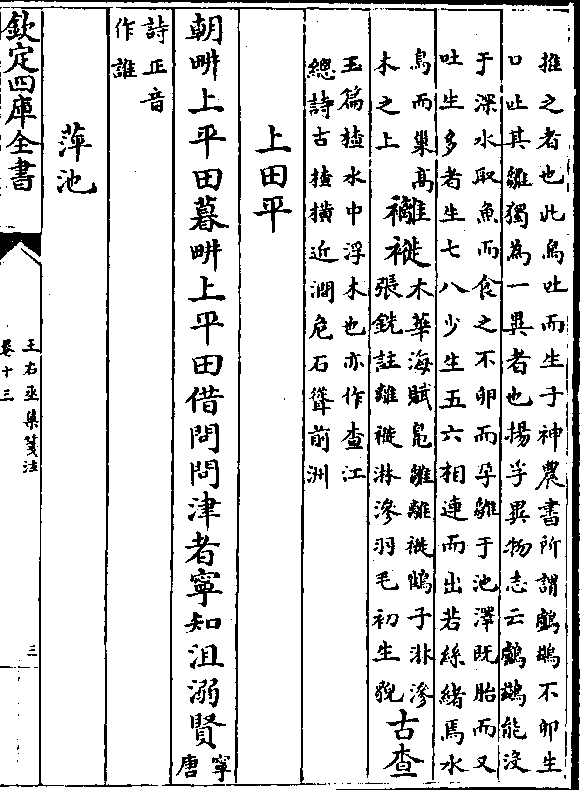 推之者也此鳥吐而生子神農書所謂鸕鷀不卵生
口吐其雛獨為一異者也揚孚異物志云鸕鷀能没
于深水取魚而食之不卵而孕雛于池澤既胎而又
吐生多者生七八少生五六相連而出若絲緒焉水
鳥而巢高
木之上
褷
木華海賦鳬雛離褷鶴子淋滲
張銑註離褷淋滲羽毛初生貌
古查
玉篇楂水中浮木也亦作查江
總詩古楂横近澗危石聳前洲
上田平
朝畊上平田暮畊上平田借問問津者寧知沮溺賢
寧
唐
詩正音
作誰
萍池
欽定四庫全書
王右丞集箋注
卷十三
三